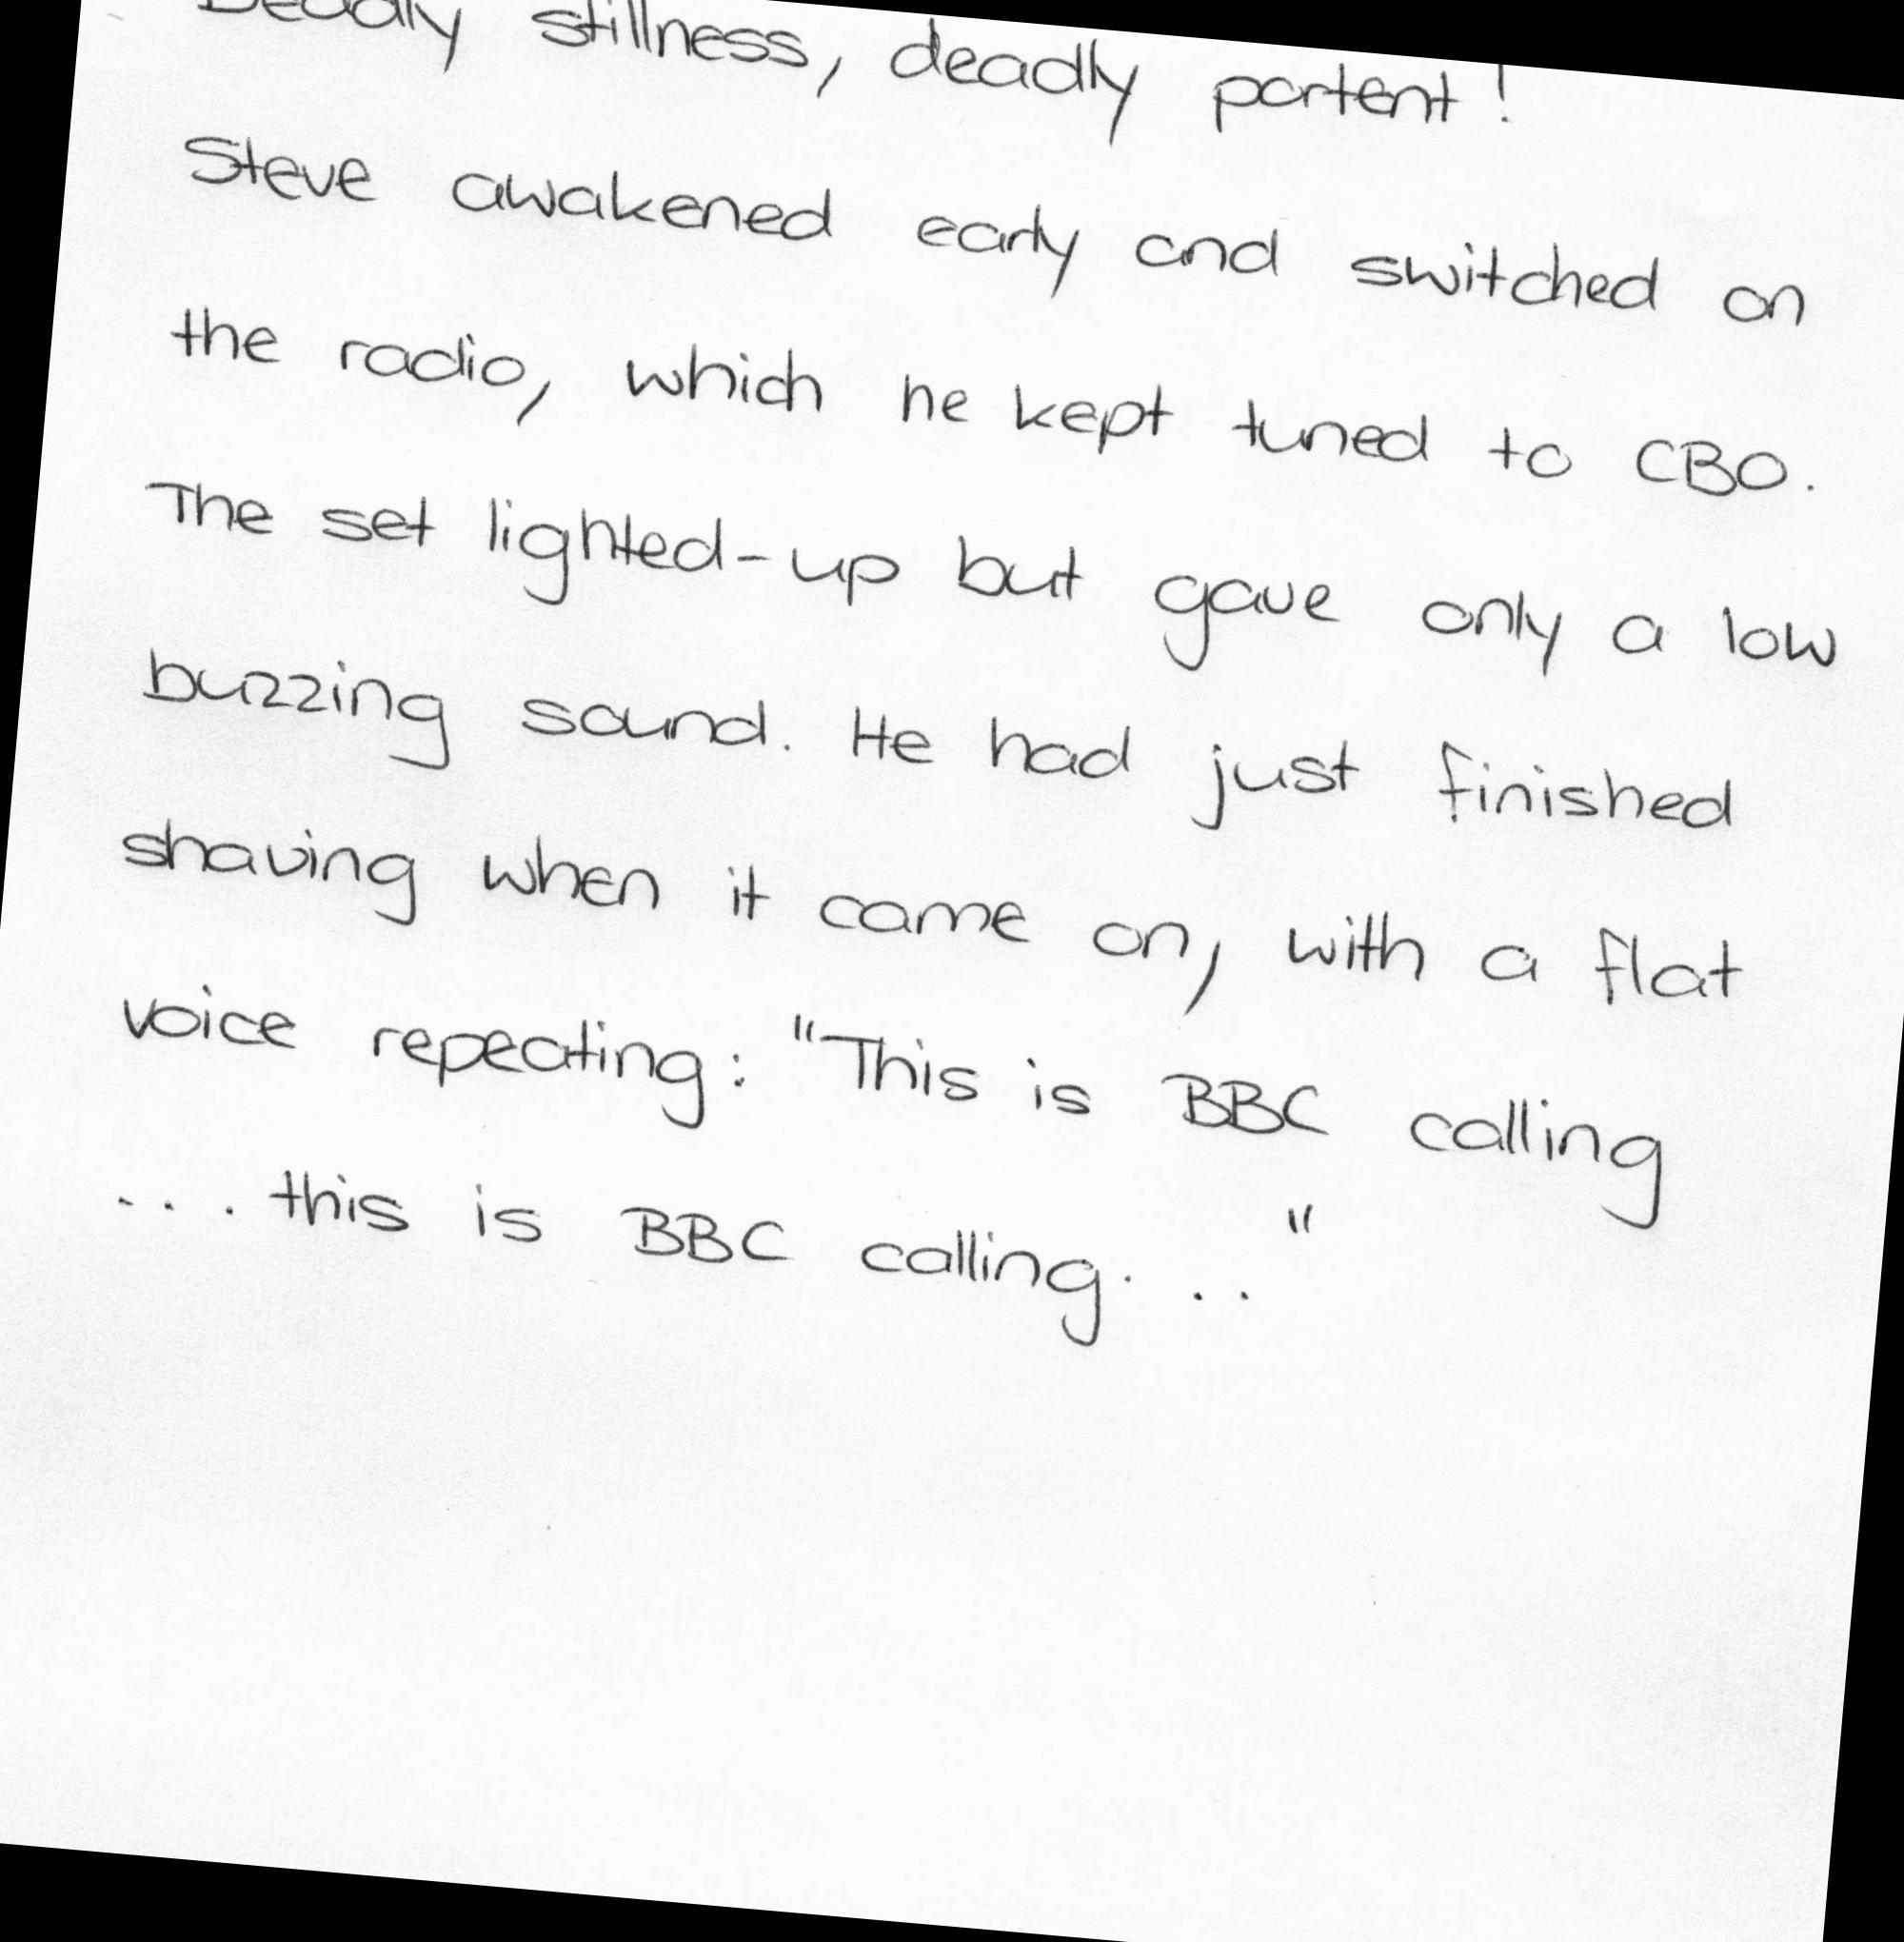 Deadly stillness, deadly portent!
Steve awakened early and switched on
the radio, which he kept tuned to CBO.
The set lighted-up but gave only a low
buzzing sound. He had just finished
shaving when it came on, with a flat
voice repeating: "This is BBC calling
... this is BBC calling. .."